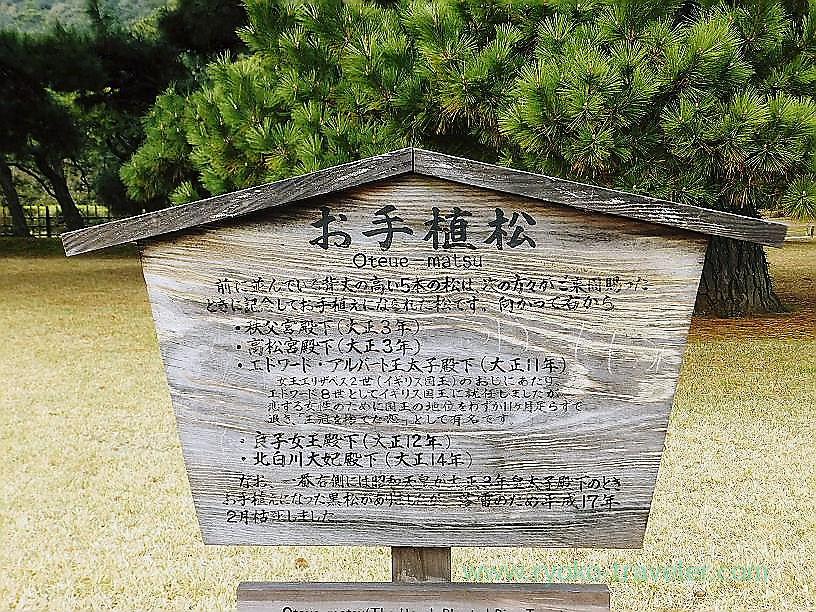 お手植松
Oteue-matsu
前に並んでいる背丈の高い5本の松は、次の方々がご来園賜った
ときに記念してお手植えになられた松です。向かって右から
・秩父宮殿下(大正3年)
・高松宮殿下(大正3年)
・エドワード・アルバート王太子殿下(大正11年)
女王エリザベス2世(イギリス国王)のおじにあたり、
エドワード8世としてイギリス国王に就任しましたが、
恋する女性のために国王の地位をわずか11ヶ月足らずで
退き、「王冠を捨てた恋」として有名です
・良子女王殿下(大正12年)
・北白川大妃殿下(大正14年)
なお、一番右側には昭和天皇が大正3年皇太子殿下のとき
お手植えになった黒松がありましたが、落雷のため平成17年
2月枯死しました
Oteue-matsu(The Hand-Planted Pine Trees)
www.ryoko-traveler.com